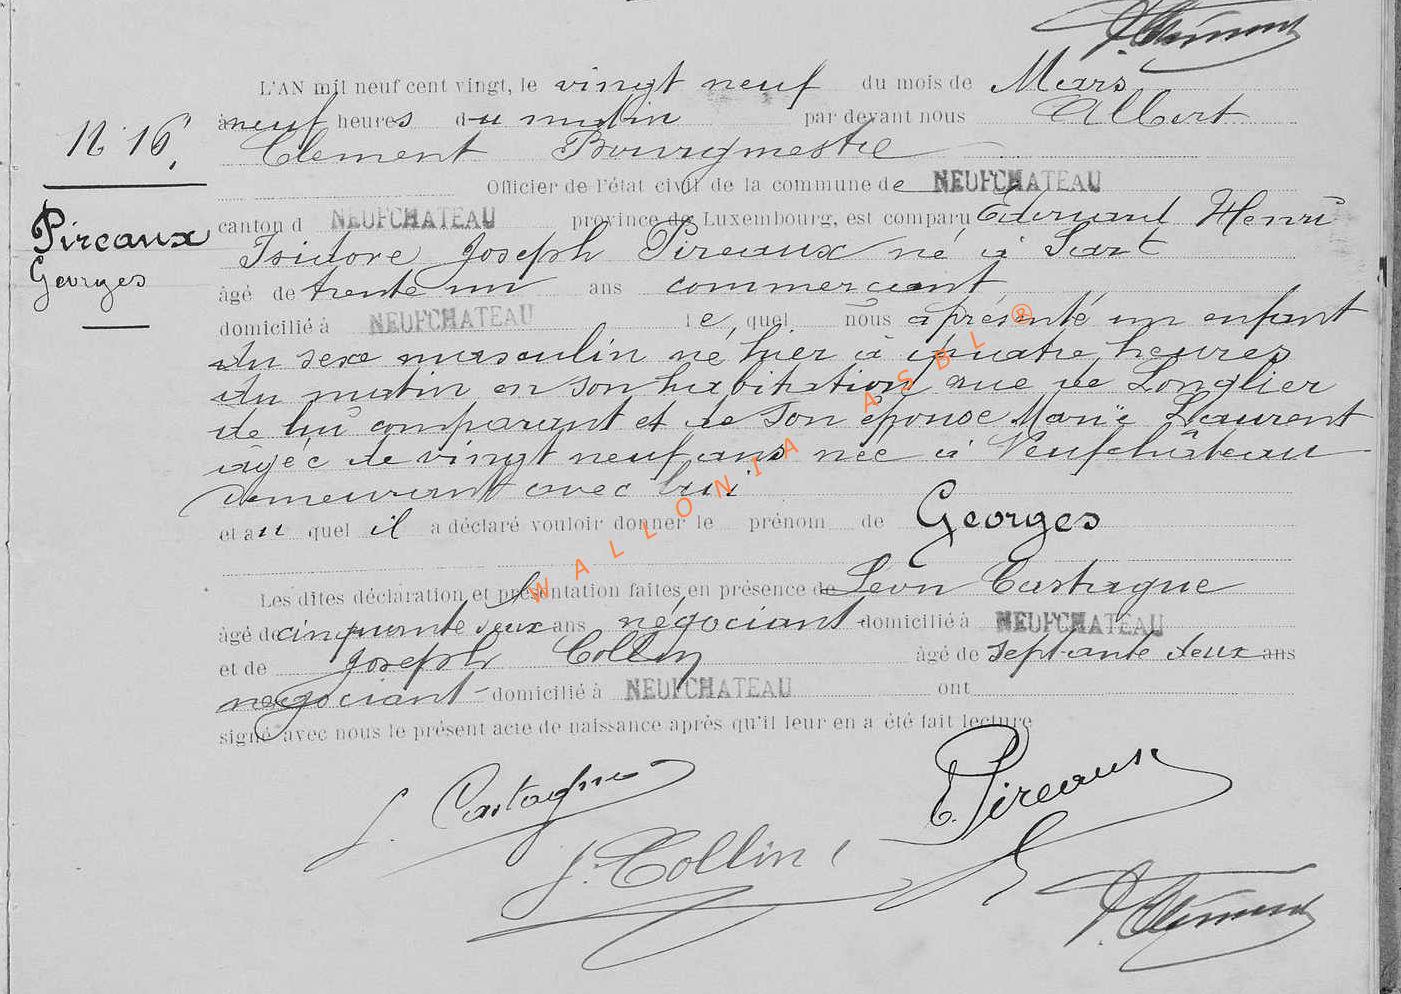 L'AN mil neuf cent vingt, le vingt neuf du mois de Mars
à neuf heures du matin par devant nous Albert
N° 16.
Clement Bourgmestre
Officier de l'état civil de la commune de NEUFCHATEAU
canton d NEUFCHATEAU province de Luxembourg, est comparu Edouard Henri
Pireaux
Georges
Isidore Joseph Pireaux né à Sart
âgé de trente un ans commerçant
domicilié à NEUFCHATEAU le quel nous a présenté un enfant
du sexe masculin né hier à quatre heures
du matin en son habitation rue de Longlier
de lui comparant et de son épouse Marie Laurent
âgée de vingt neuf ans née à Neufchâteau
demeurant avec lui
et au quel il a déclaré vouloir donner le prénom de Georges
Les dites déclaration et présentation faites en présence de Léon Castagne
âgé de cinquante deux ans négociant domicilié à NEUFCHATEAU
et de Joseph Collin âgé de septante deux ans
négociant domicilié à NEUFCHATEAU ont
signé avec nous le présent acte de naissance après qu'il leur en a été fait lecture
L. Castagne
E. Pireaux
J. Collin
A. Clément
WALLONIA ASBL ®